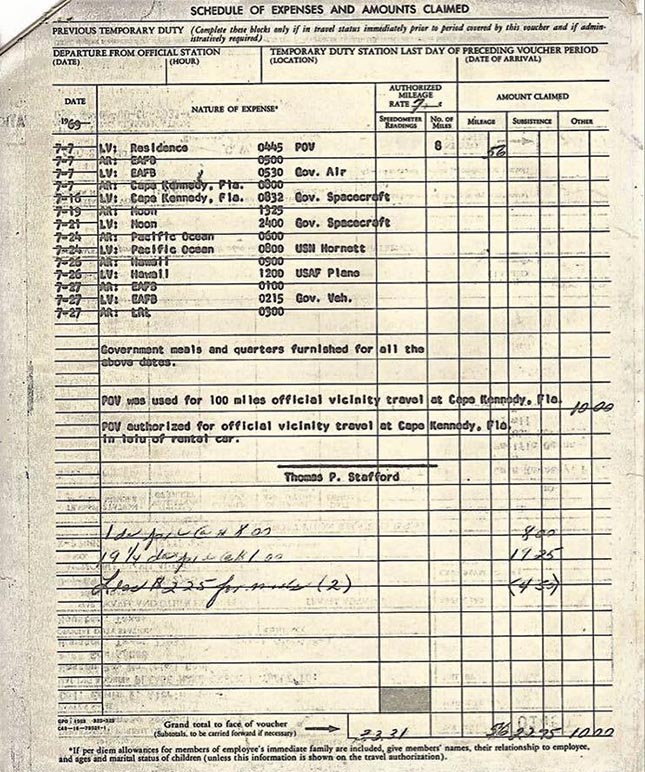 SCHEDULE OF EXPENSES AND AMOUNTS CLAIMED
PREVIOUS TEMPORARY DUTY (Complete these blocks only if in travel status immediately prior to period covered by this voucher and if admin-
istratively required)
DEPARTURE FROM OFFICIAL STATION TEMPORARY DUTY STATION LAST DAY OF PRECEDING VOUCHER PERIOD
(DATE) (HOUR) (LOCATION) (DATE OF ARRIVAL)
DATE NATURE OF EXPENSE* AUTHORIZED MILEAGE RATE 7 ¢ AMOUNT CLAIMED
1969 SPEEDOMETER READINGS NO. OF MILES MILEAGE SUBSISTENCE OTHER
7-7 LV: Residence 0445 POV 8 56
7-7 AR: EAFB 0500
7-7 LV: EAFB 0530 Gov. Air
7-7 AR: Cape Kennedy, Fla. 0800
7-16 LV: Cape Kennedy, Fla. 0832 Gov. Spacecraft
7-19 AR: Moon 1325
7-21 LV: Moon 2400 Gov. Spacecraft
7-24 AR: Pacific Ocean 0600
7-24 LV: Pacific Ocean 0800 USN Hornett
7-26 AR: Hawaii 0900
7-26 LV: Hawaii 1200 USAF Plane
7-27 AR: EAFB 0100
7-27 LV: EAFB 0215 Gov. Veh.
7-27 AR: LRL 0300
Government meals and quarters furnished for all the
above dates.
POV was used for 100 miles official vicinity travel at Cape Kennedy, Fla. 10.00
POV authorized for official vicinity travel at Cape Kennedy, Fla.
in leiu of rental car.
Thomas P. Stafford
1 day per @ 8.00 8.00
19 1/4 days @ 1.00 19.25
Less $2.25 for meals (2) (4.50)
GPO
Grand total to face of voucher
(Subtotals, to be carried forward if necessary) 33.31 56 22.75 10.00
*If per diem allowances for members of employee's immediate family are included, give members' names, their relationship to employee,
and ages and marital status of children (unless this information is shown on the travel authorization).